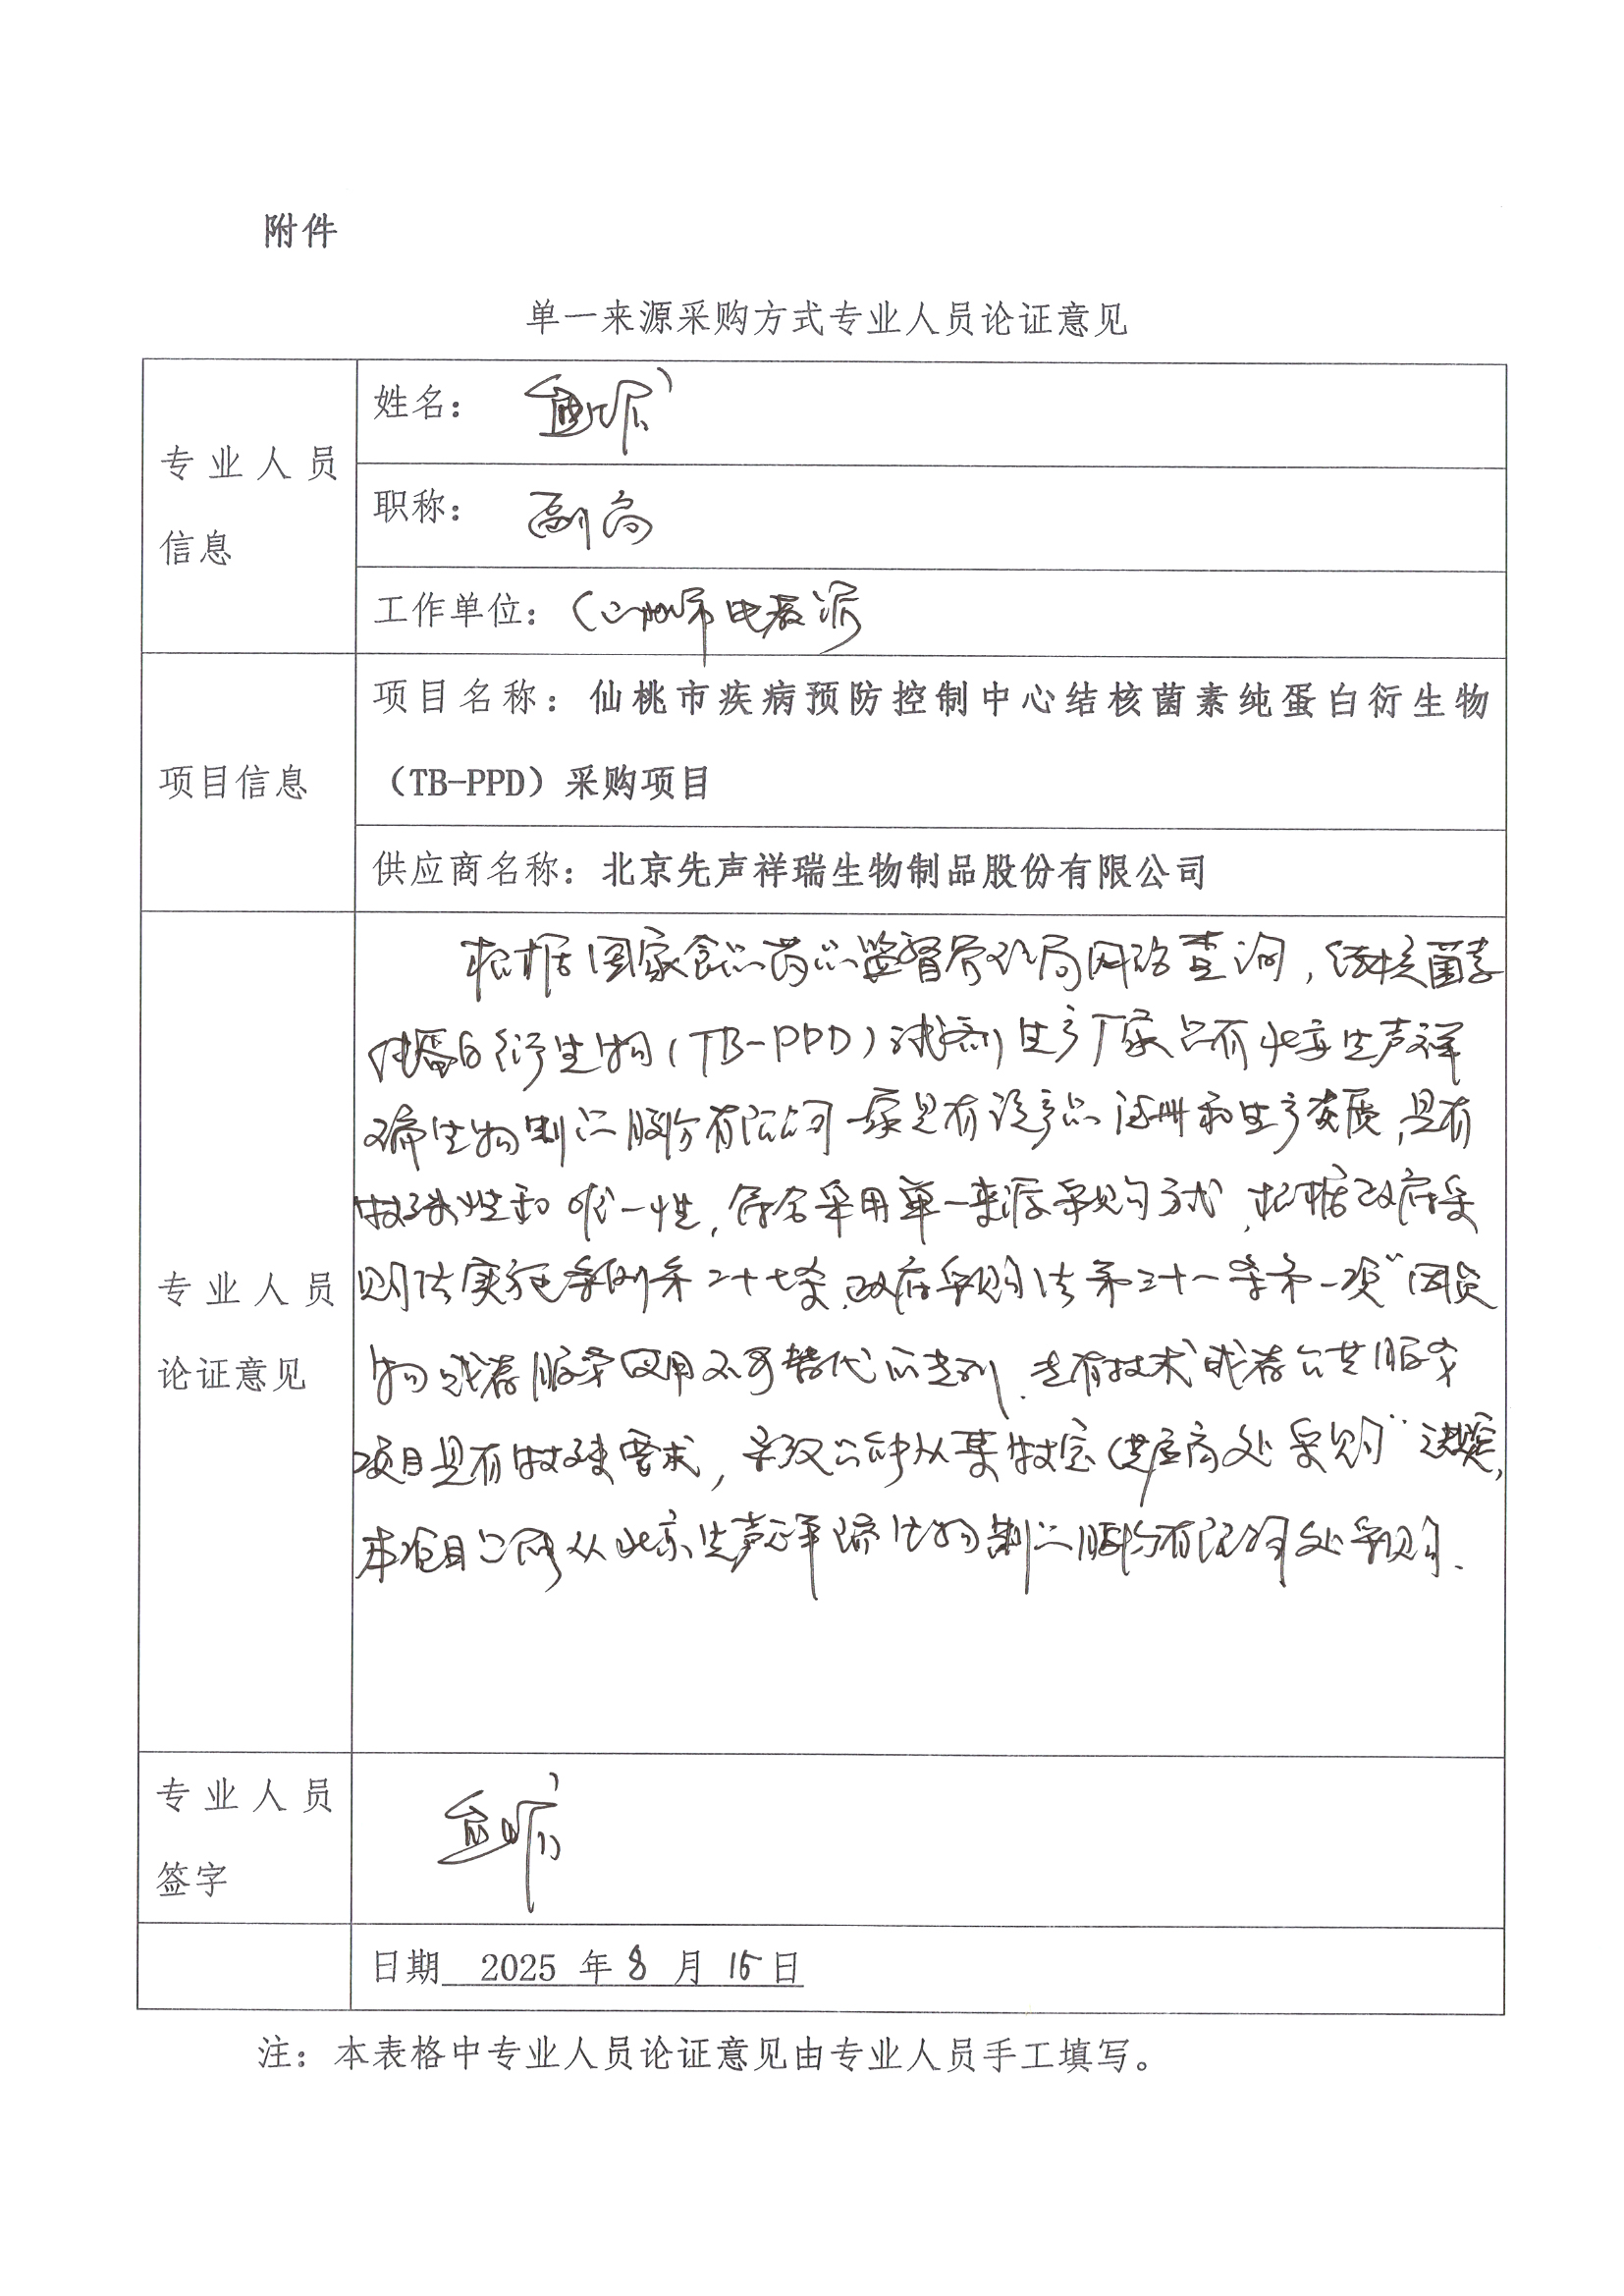 附件
单一来源采购方式专业人员论证意见
专业人员
信息
姓名：
职称： 副高
工作单位： 仙桃市电教
项目信息
项目名称：仙桃市疾病预防控制中心结核菌素纯蛋白衍生物
（TB-PPD）采购项目
供应商名称：北京先声祥瑞生物制品股份有限公司
专业人员
论证意见
根据国家食品药品监督管理局网络查询，结核菌素
纯蛋白衍生物（TB-PPD）试剂生产厂家只有北京先声祥
瑞生物制品股份有限公司一家具有该产品注册和生产资质，具有
特殊性和唯一性，符合采用单一来源采购方式，根据政府采
购法实施条例第二十七条，政府采购法第三十一条第一项“因货
物或者服务使用不可替代的专利、专有技术或者公共服务
项目具有特殊要求，导致只能从某特定供应商处采购”
本项目只能从北京先声祥瑞生物制品股份有限公司处采购。
专业人员
签字
日期 2025 年 8 月 15 日
注：本表格中专业人员论证意见由专业人员手工填写。